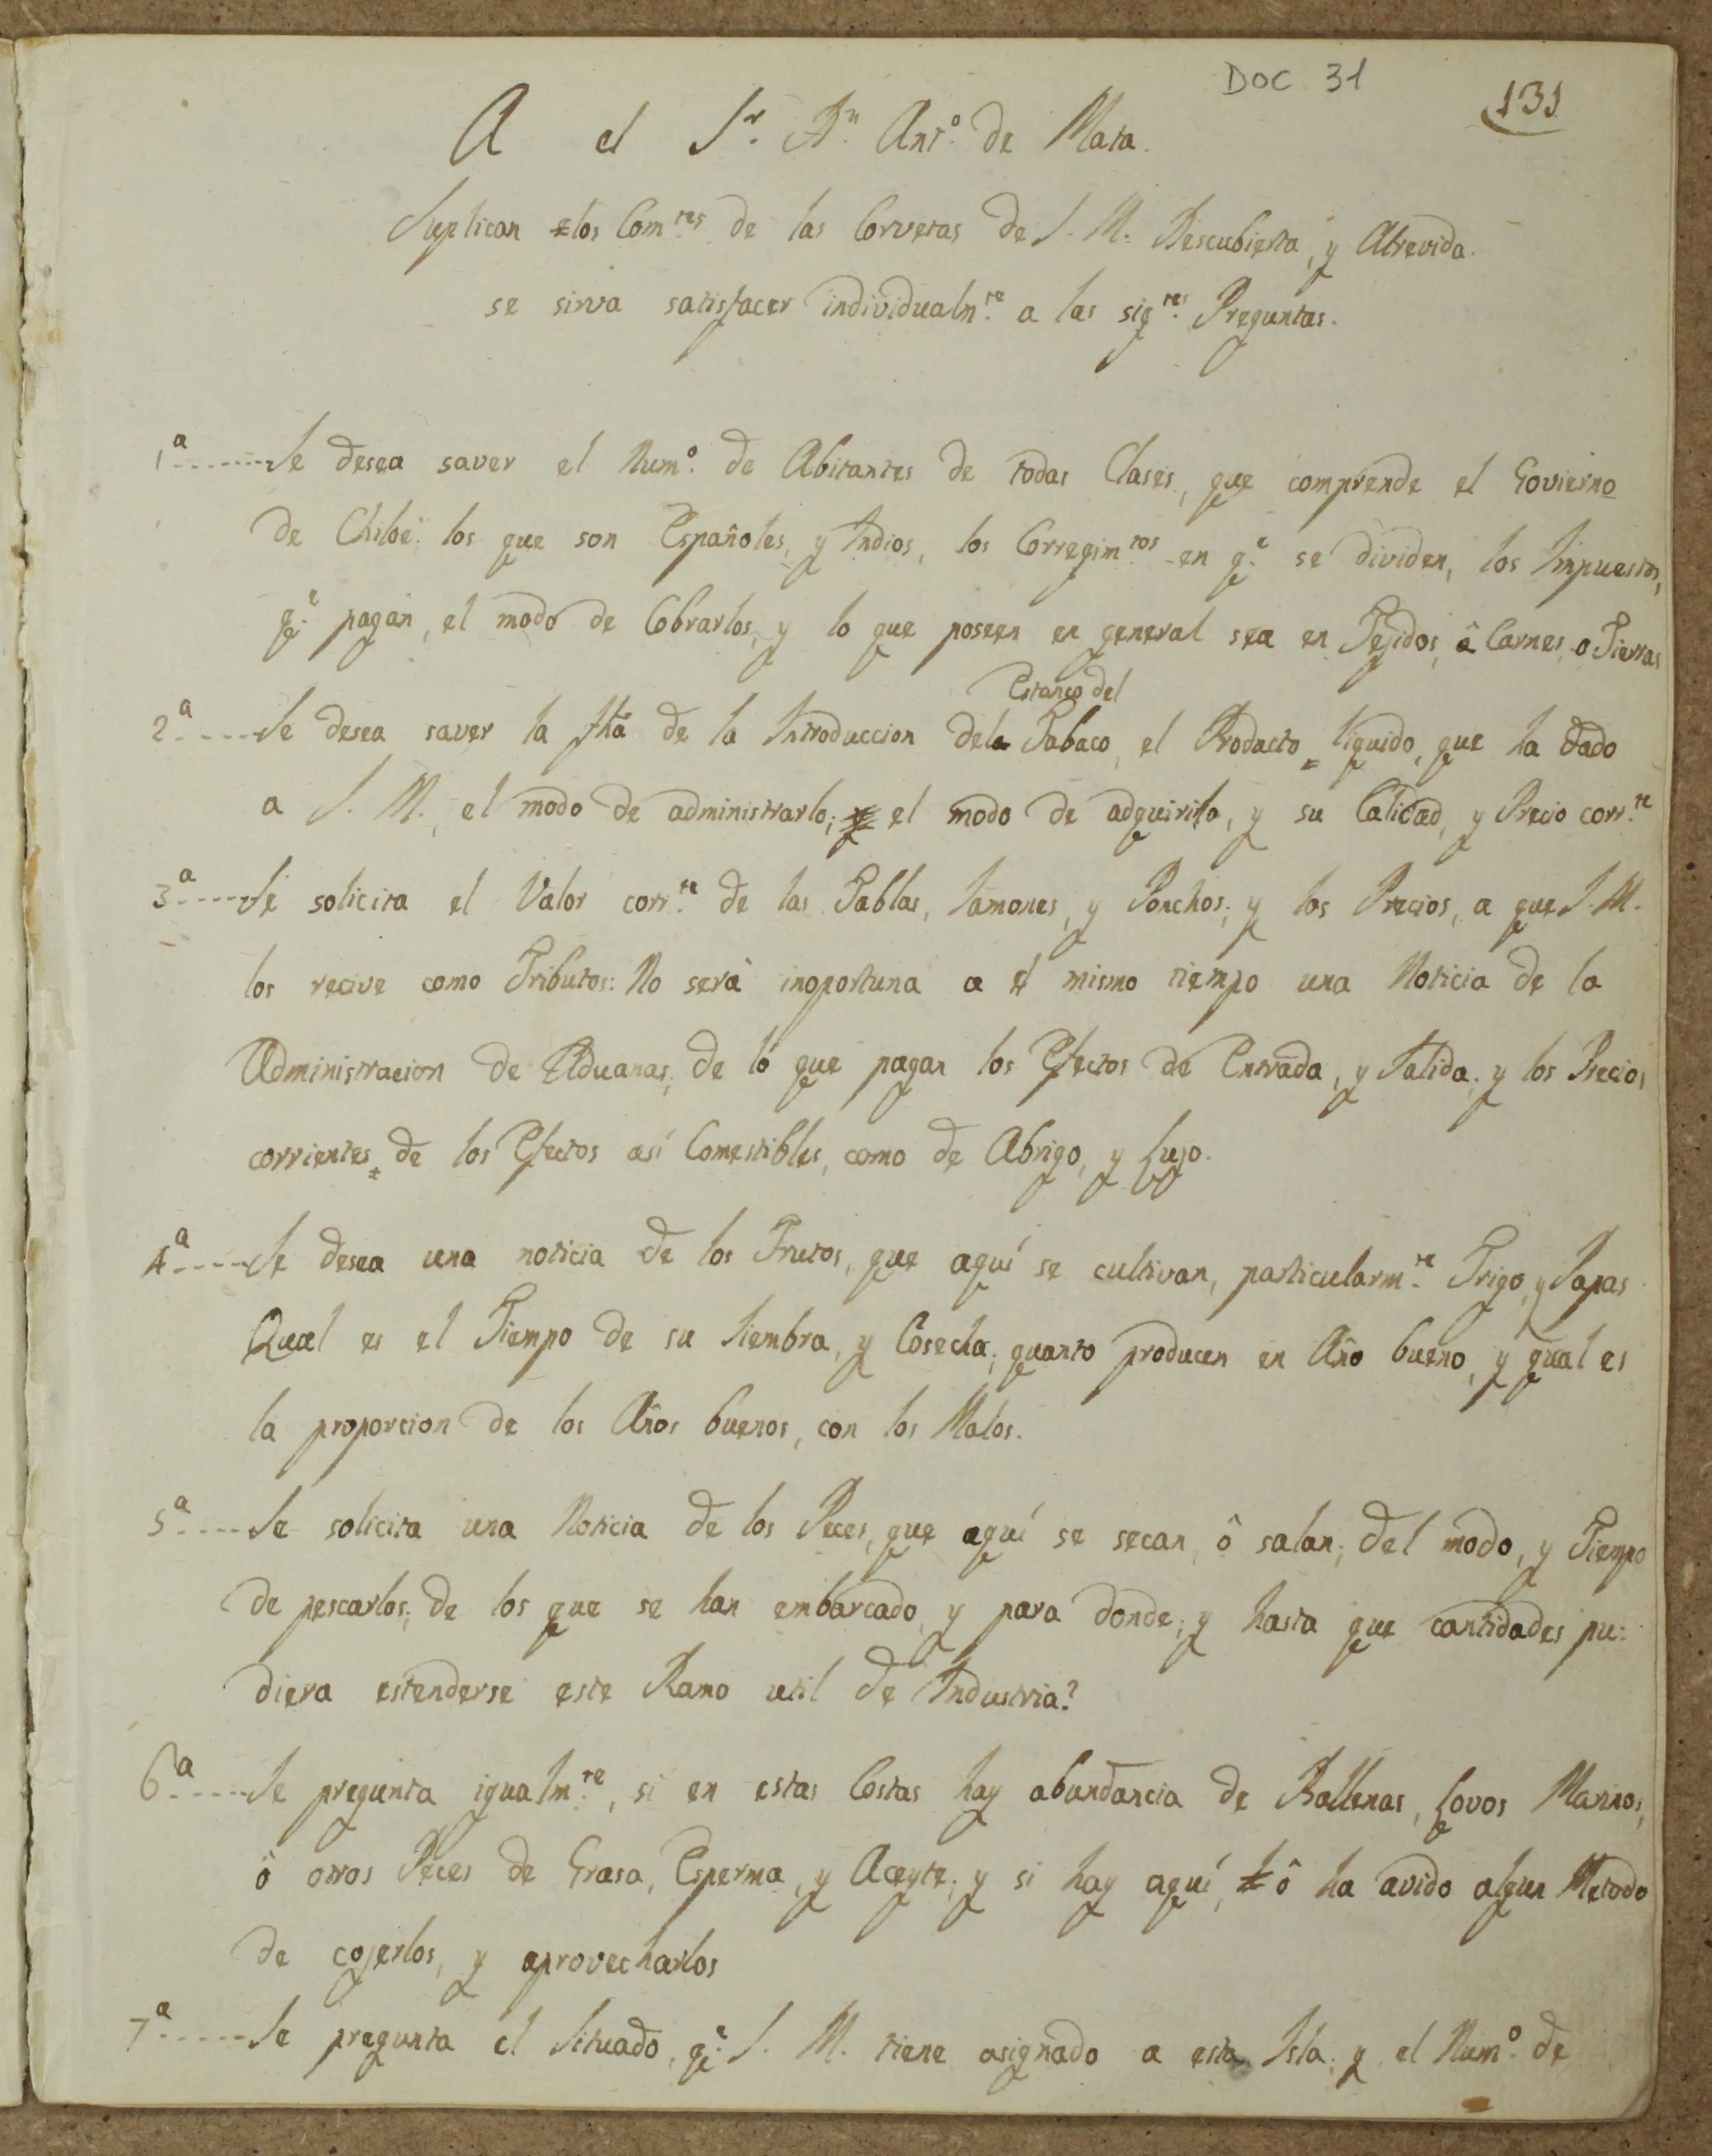 DOC 31
131
A el Sr. Dn. Anto. de Mata.
Suplican los Comres. de las Corvetas de S. M. Descubierta, y Atrevida.
se sirva satisfacer individualmte. a las sigtes. Preguntas.
1a......Se desea saver el Numo. de Abitantes de todas Clases, que comprende el Govierno
de Chiloè: los que son Españoles, y Indios, los Corregimtos. en qe. se dividen, los Impuestos,
qe. pagan, el modo de Cobrarlos, y lo que poseen en general sea en Tejidos, ô Carnes, o Tierras
Estanco del
2a.....Se desea saver la fha de la Introduccion dela Tabaco, el Producto liquido, que ha dado
a S. M., el modo de administrarlo; y el modo de adquirirlo, y su Calidad, y Precio corrte.
3a.....Se solicita el Valor corrte. de las Tablas, Jamones, y Ponchos; y los Precios, a que S. M.
los recive como Tributos: No serà inoportuna a el mismo tiempo una Noticia de la
Administracion de Aduanas; de lo que pagan los Efectos de Entrada, y Salida; y los Precios
corrientes de los Efectos asi Comestibles, como de Abrigo, y Lujo.
4a.....Se desea una noticia de los Frutos, que aquí se cultivan, particularmte. Trigo, y Papas
Qual es el Tiempo de su Siembra, y Cosecha; quanto producen en Año bueno, y qual es
la proporcion de los Años buenos, con los Malos.
5a.....Se solicita una Noticia de los Peces, que aquí se secan, ô salan; del modo, y Tiempo
de pescarlos; de los que se han embarcado, y para donde; y hasta que cantidades pu=
diera estenderse este Ramo util de Industria?
6a.....Se pregunta igualmte., si en estas Costas hay abundancia de Ballenas, Lovos Marinos,
ô otros Peces de Grasa, Esperma, y Aceyte; y si hay aquí, ô ha avido algun Metodo
de cojerlos, y aprovecharlos
7a......Se pregunta el Situado, qe. S. M. tiene asignado a esta Isla; y el Numo. de